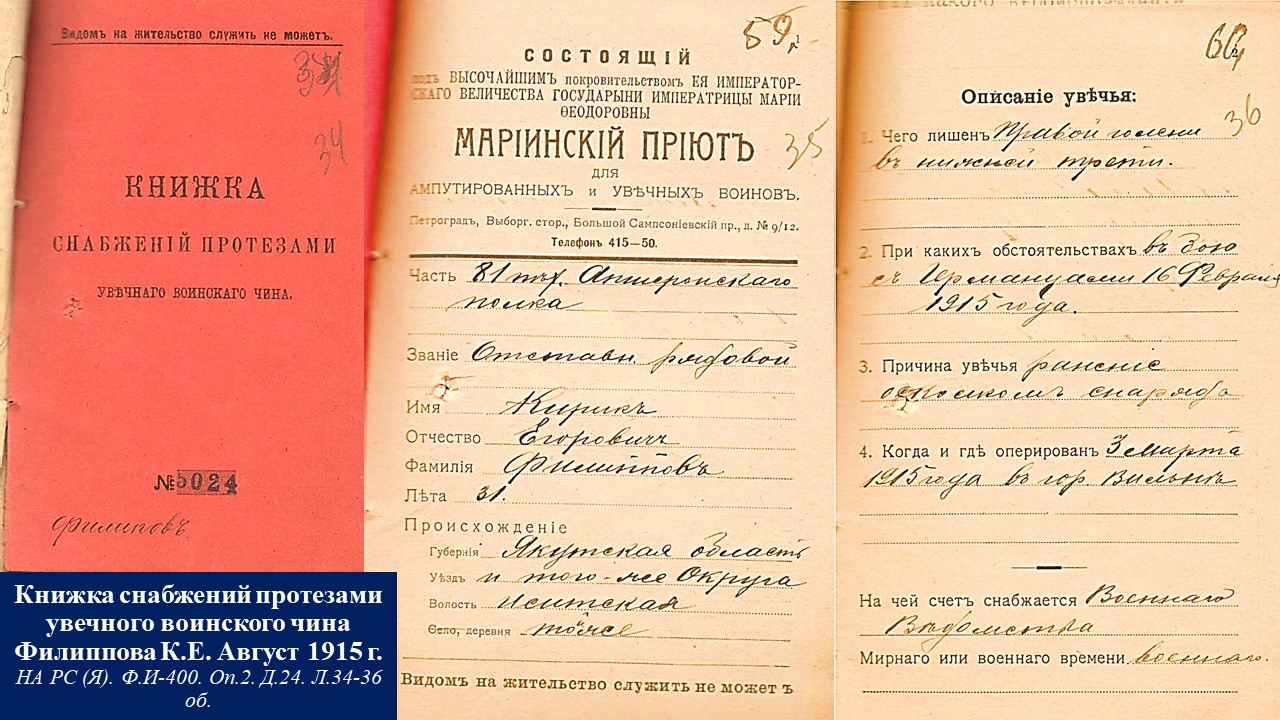 Видомъ на жительство служить не можетъ.
34
КНИЖКА
СНАБЖЕНІЙ ПРОТЕЗАМИ
УВѢЧНАГО ВОИНСКАГО ЧИНА.
№ 5024
Филиповъ
Книжка снабжений протезами
увечного воинского чина
Филиппова К.Е. Август 1915 г.
НА РС (Я). Ф.И-400. Оп.2. Д.24. Л.34-36
об.
59
СОСТОЯЩІЙ
подъ ВЫСОЧАЙШИМЪ покровительствомъ ЕЯ ИМПЕРАТОР-
СКАГО ВЕЛИЧЕСТВА ГОСУДАРЫНИ ИМПЕРАТРИЦЫ МАРІИ
ѲЕОДОРОВНЫ
МАРІИНСКІЙ ПРІЮТЪ
35
ДЛЯ
АМПУТИРОВАННЫХЪ и УВѢЧНЫХЪ ВОИНОВЪ.
Петроградъ, Выборг. стор., Большой Сампсоніевскій пр., д. № 9/12.
Телефонъ 415—50.
Часть 81 пѣх. Апшеронскаго
полка
Званіе Отставн. рядовой
Имя Кирикъ
Отчество Егоровичъ
Фамилія Филипповъ
Лѣта 31.
Происхожденіе
Губернія Якутская область
Уѣздъ и того-же Округа
Волость Иситская
Село, деревня тоже
Видомъ на жительство служить не можетъ
60
Описаніе увѣчья:
36
1. Чего лишенъ Правой голени
въ нижней трети.
2. При какихъ обстоятельствахъ въ бою
съ Германцами 16 Февраля
1915 года.
3. Причина увѣчья раненіе
осколкомъ снаряда
4. Когда и гдѣ оперированъ 3 марта
1915 года въ гор. Вильнѣ
На чей счетъ снабжается Военнаго
Вѣдомства
Мирнаго или военнаго времени военнаго.